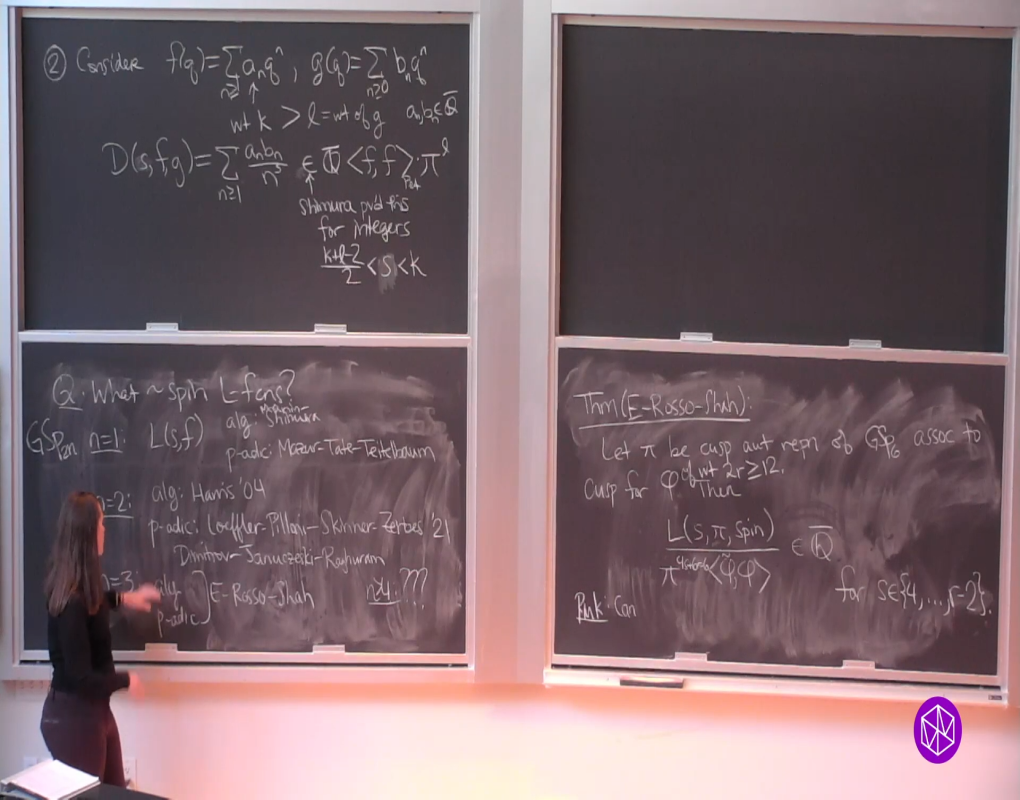 ② Consider f(q)=∑ aₙqⁿ, g(q)=∑ bₙqⁿ
n≥1 n≥0
wt k > l = wt of g aₙ,bₙ∈ℚ̄
D(s,f,g)=∑ aₙbₙ/nˢ ∈ ℚ̄ <f,f>Pet π^l
n≥1
Shimura pv'd this
for integers
(k+l-2)/2 < s < k
Q: What ~ spin L-fcns?
GSp₂ₙ n=1: L(s,f) alg: Shimura
p-adic: Mazur-Tate-Teitelbaum
n=2: alg: Harris '04
p-adic: Loeffler-Pilloni-Skinner-Zerbes '21
Dimitrov-Januszewski-Raghuram
n=3: alg E-Rosso-Shah n≥4: ???
p-adic
Thm (E-Rosso-Shah):
Let π be cusp aut repn of GSp₆ assoc to
cusp for φ of wt 2r≥12.
Then
L(s,π,spin)
∈ ℚ̄
<φ̃,φ>
for s∈{4,...,r-2}.
Rmk: Can